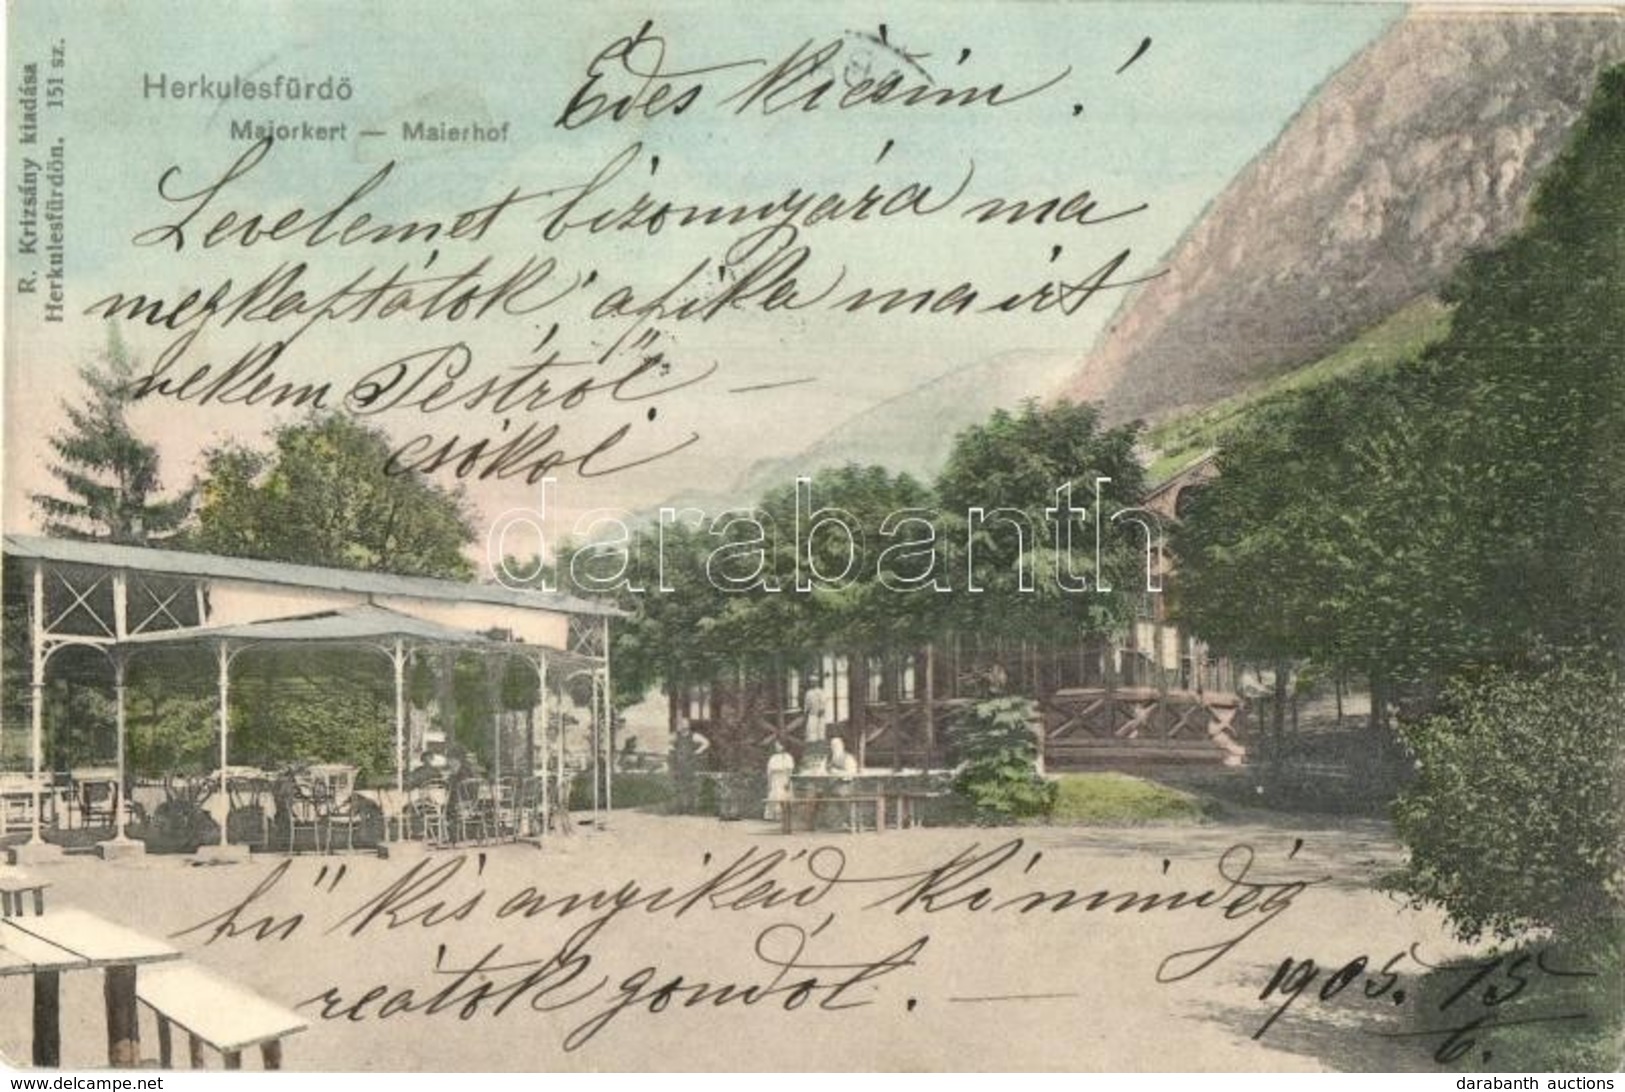 R. Krizsány kiadása
Herkulesfürdőn. 151 sz.
Herkulesfürdő
Majorkert — Maierhof
Édes kicsim!
Levelemet bizonnyára ma
megkaptátok, apika ma irt
nekem Pestről. —
csókol
hű kis anyikád, ki mindég
reátok gondol. —
1905. 15/6.
darabanth
delcampe.net
darabanth auctions